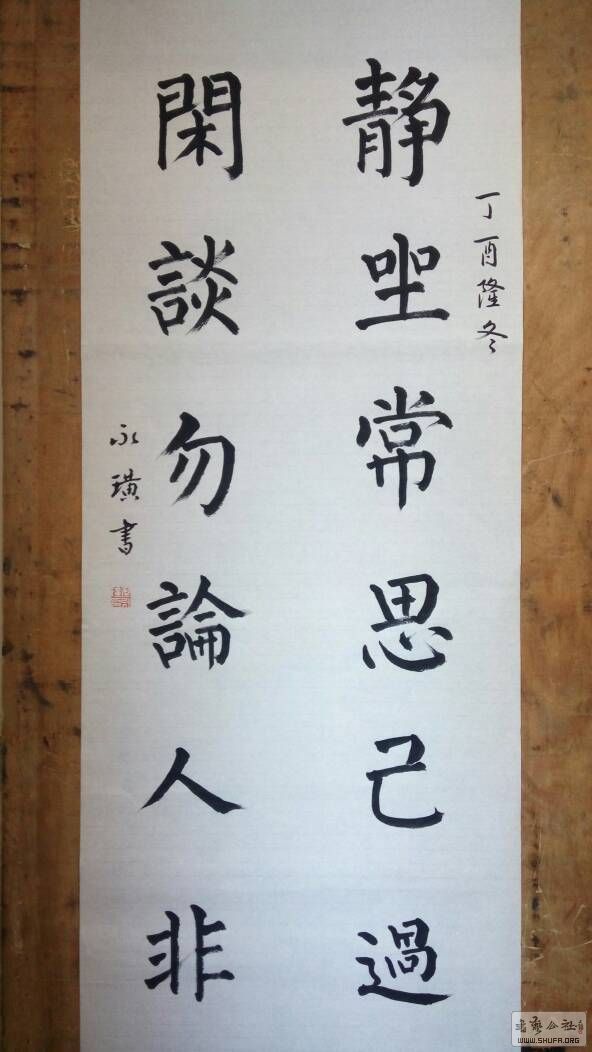 丁酉隆冬
靜坐常思己過
閑談勿論人非
永璜書
書藝公社
WWW.SHUFA.ORG